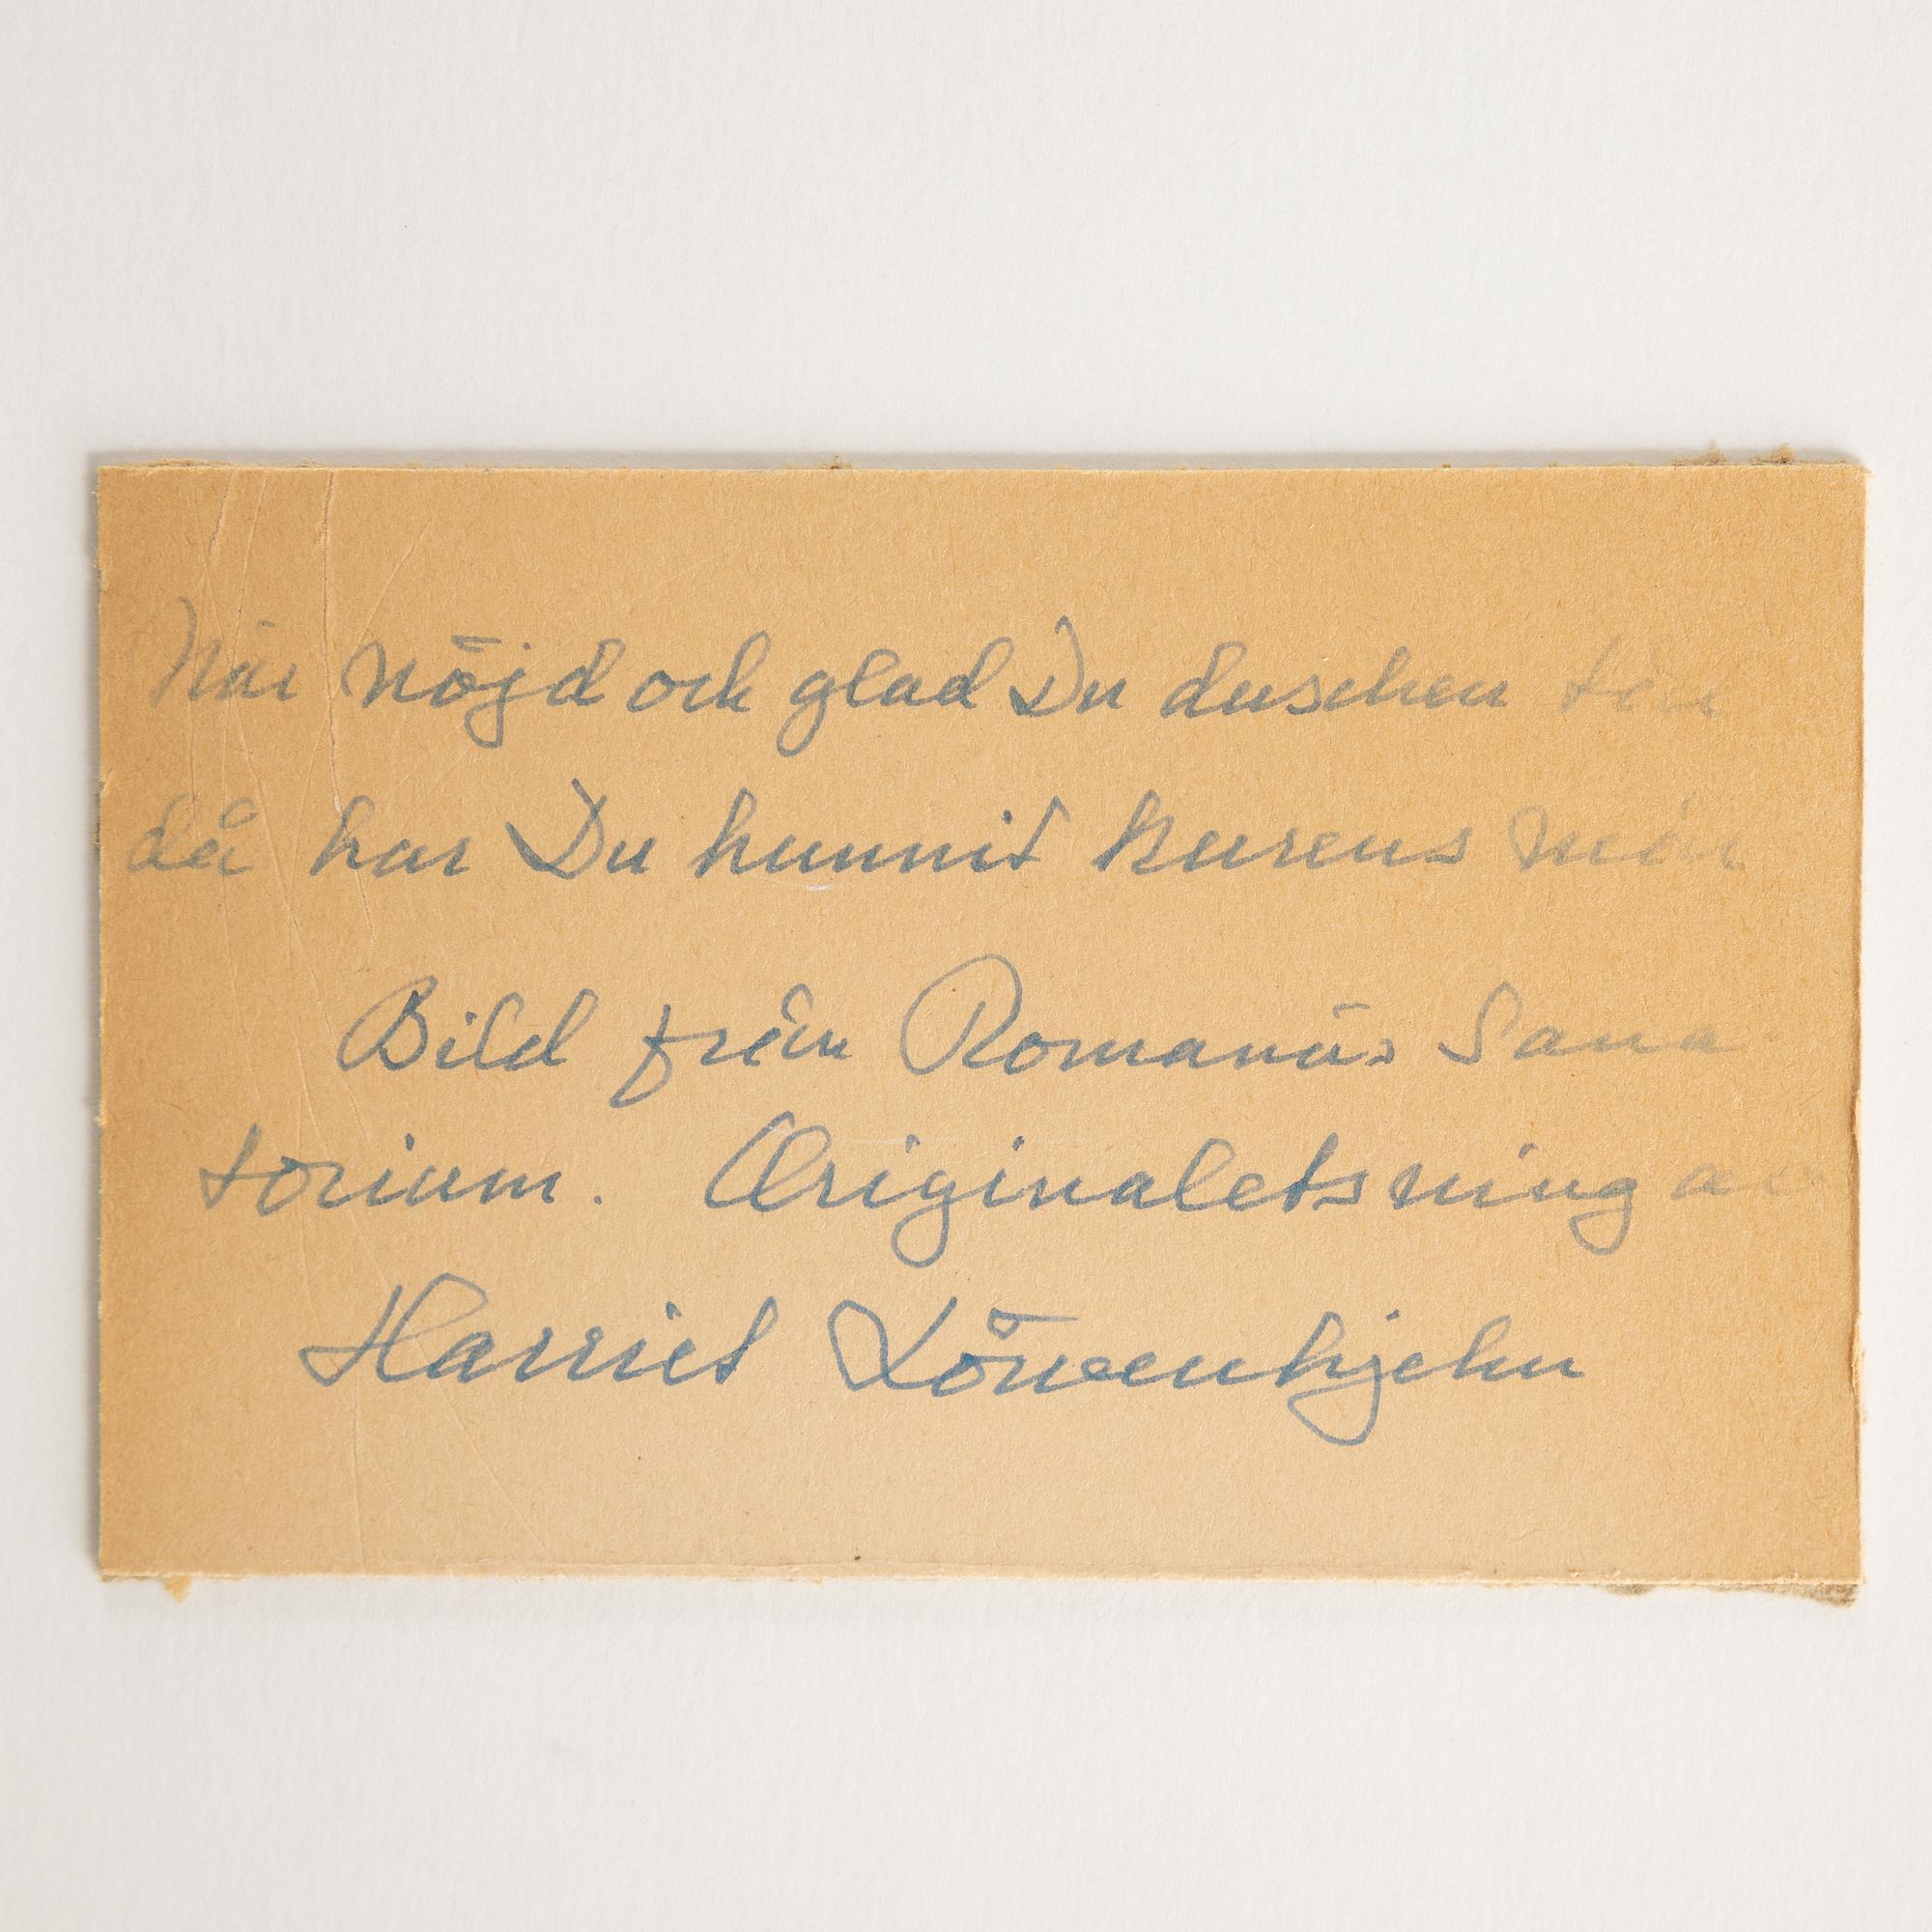 När nöjd och glad Du duschen tar
då har Du hunnit kurens mål
Bild från Romanäs Sana
torium. Originaletsning av
Harriet Löwenhjelm